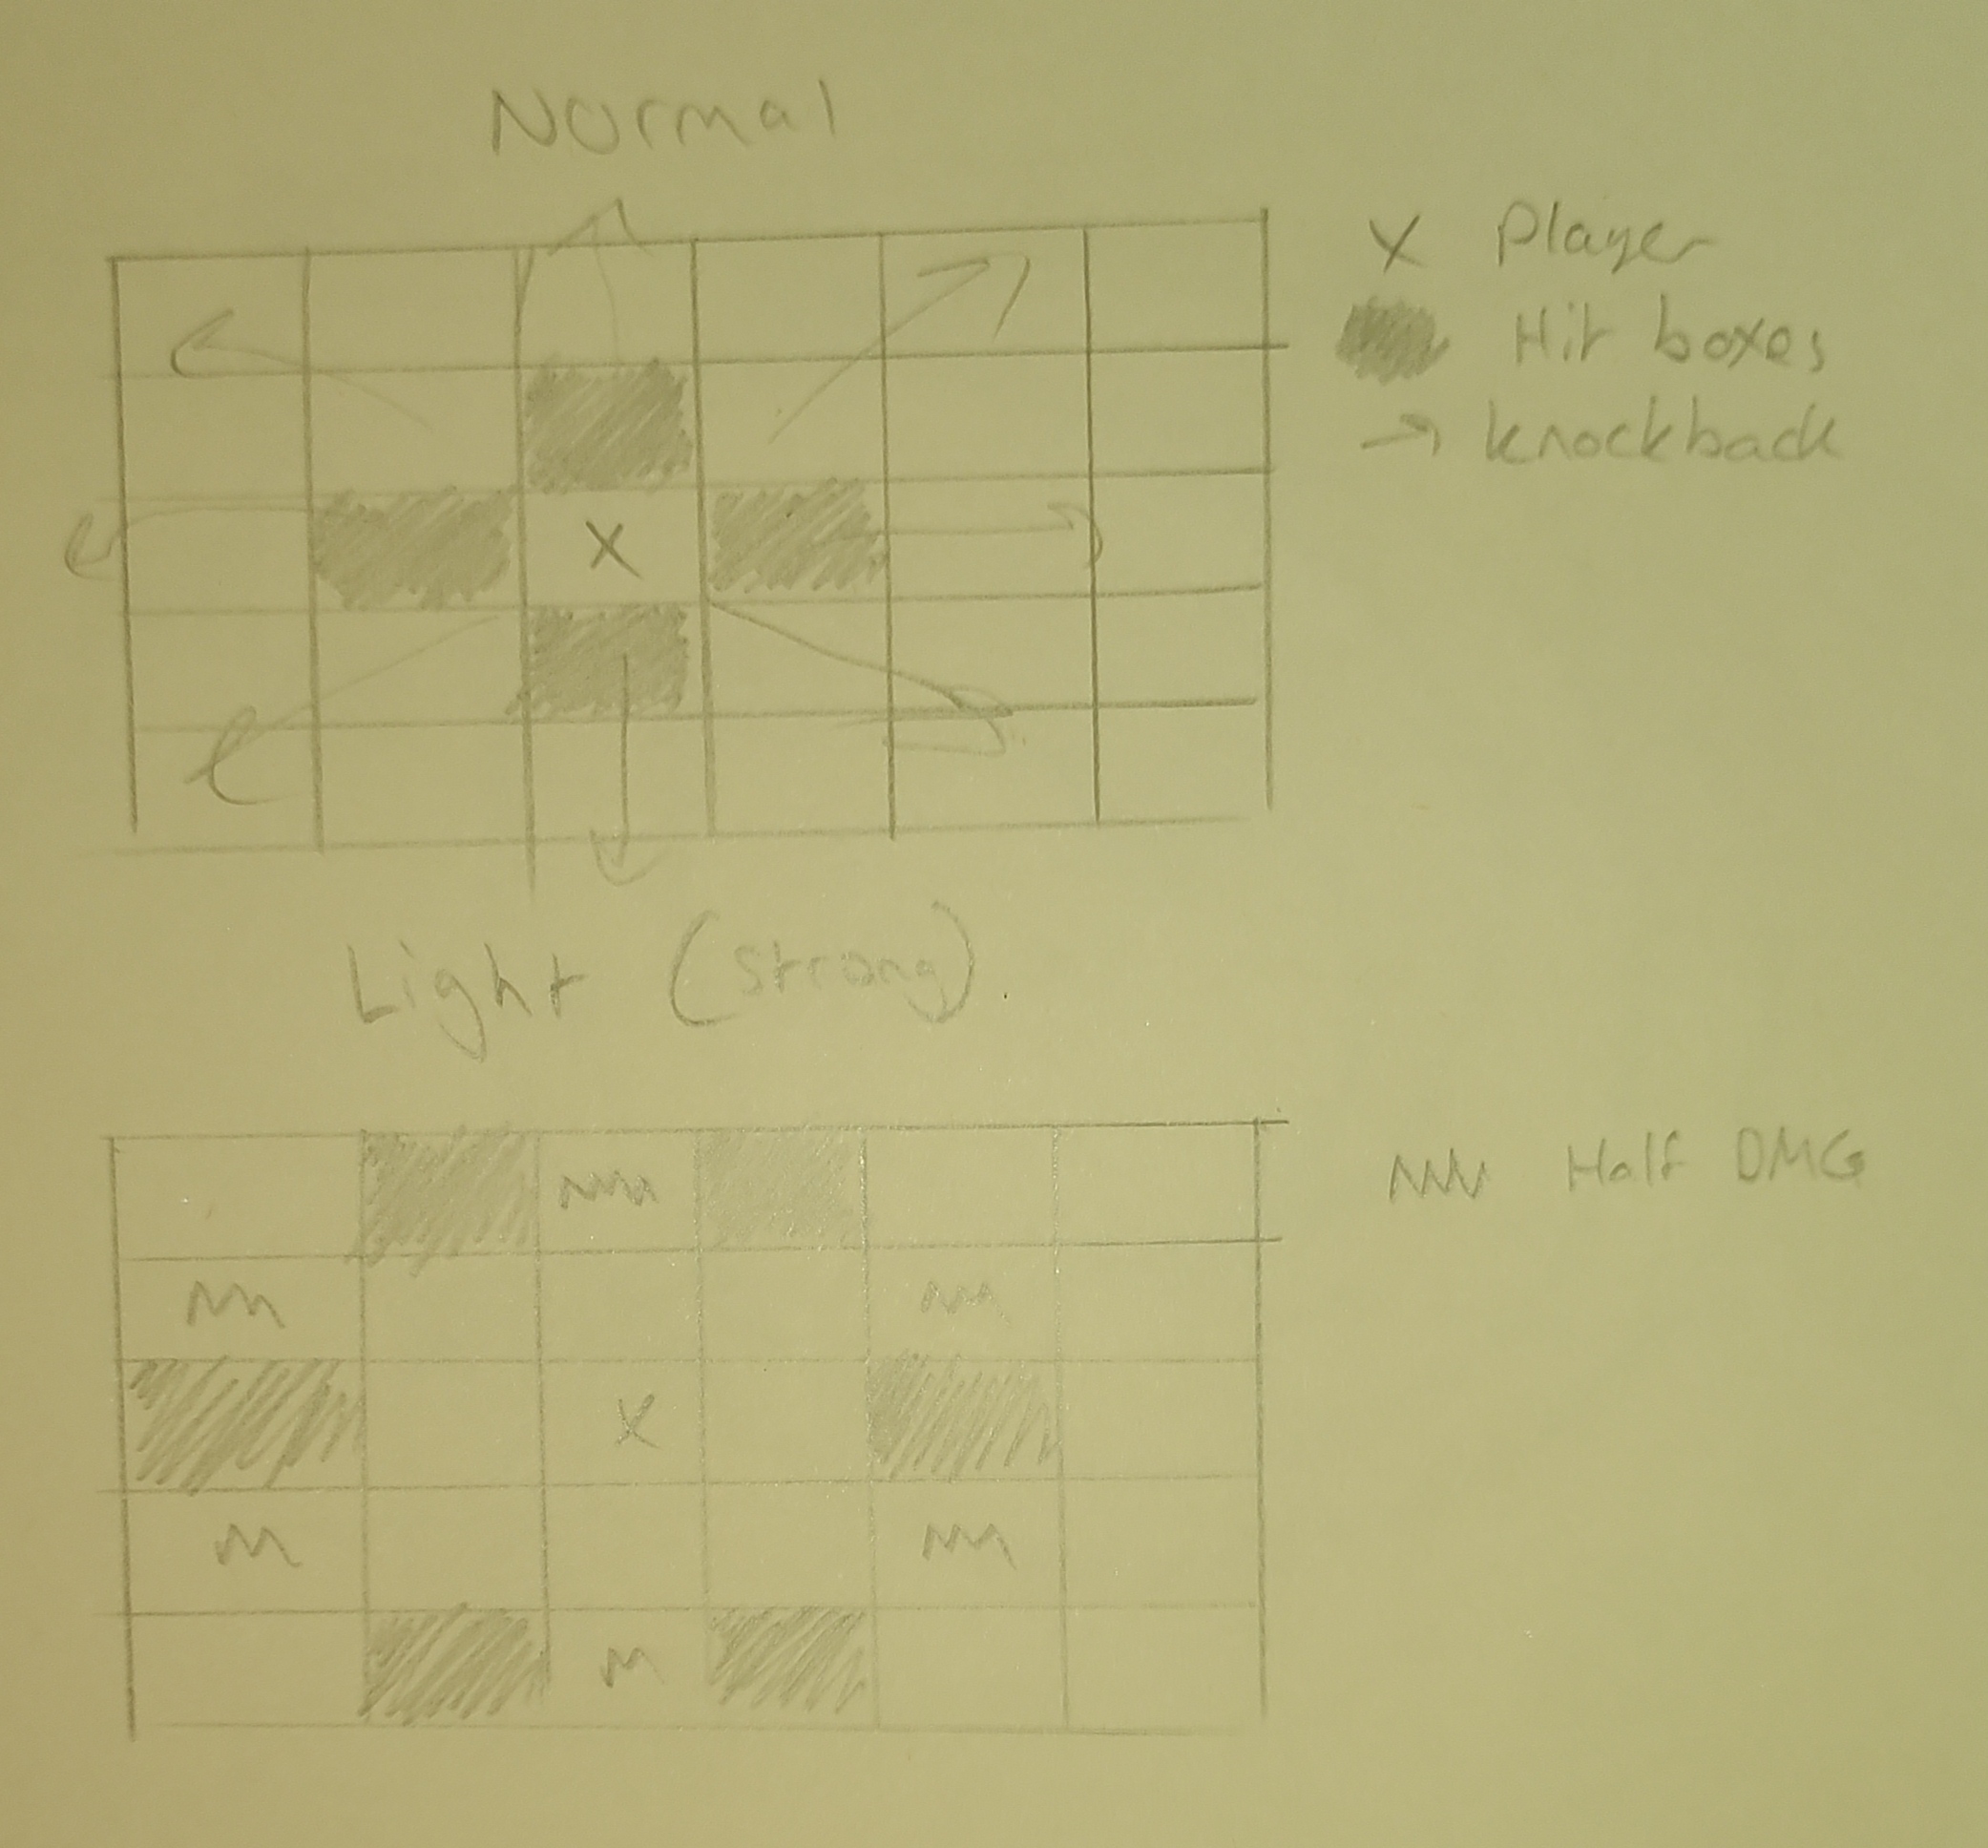 Normal
X Player
Hit boxes
→ knockback
X
Light (strong).
Half DMG
X